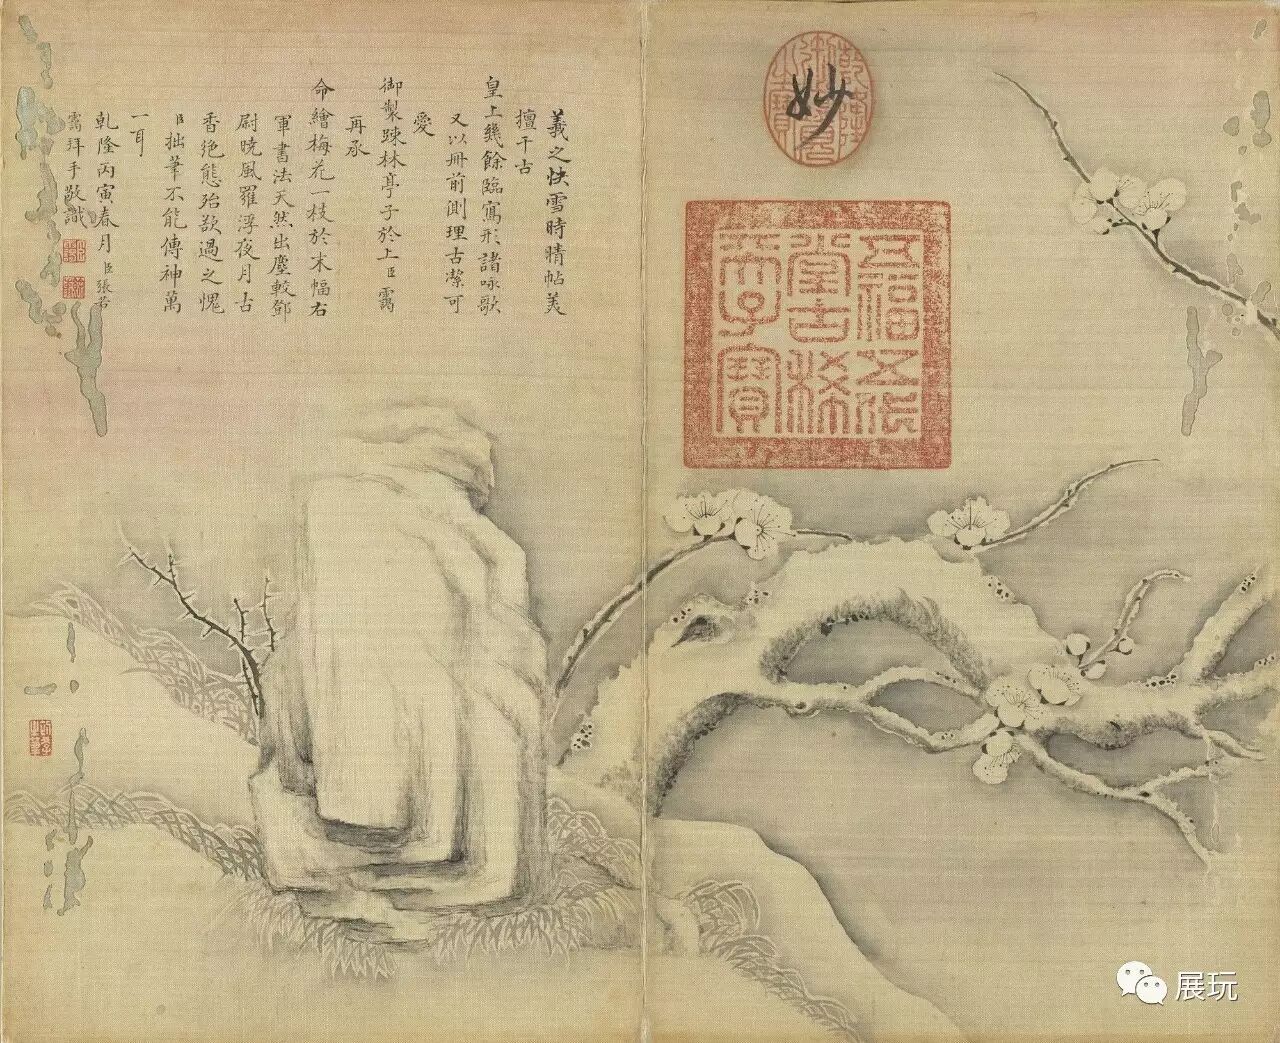 妙
五福五代
堂古稀
天子寶
羲之快雪時晴帖美
擅千古
皇上幾餘臨寫形諸咏歌
又以冊前側理古潔可
愛
御製踈林亭子於上臣靄
再承
命繪梅花一枝於末幅右
軍書法天然出塵較鄧
尉曉風羅浮夜月古
香絶態殆欲過之愧
臣拙筆不能傳神萬
一耳
乾隆丙寅春月臣張若
靄拜手敬識
展玩